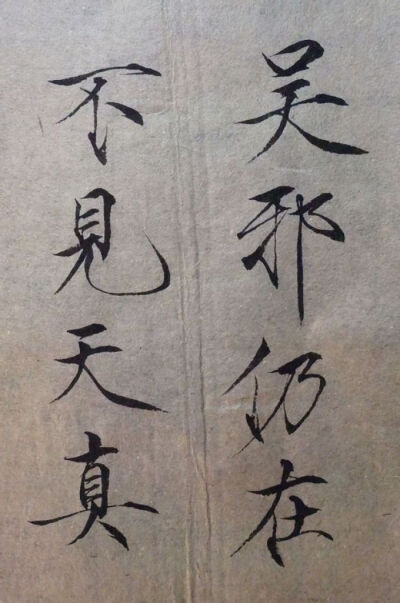 吴邪仍在
不見天真